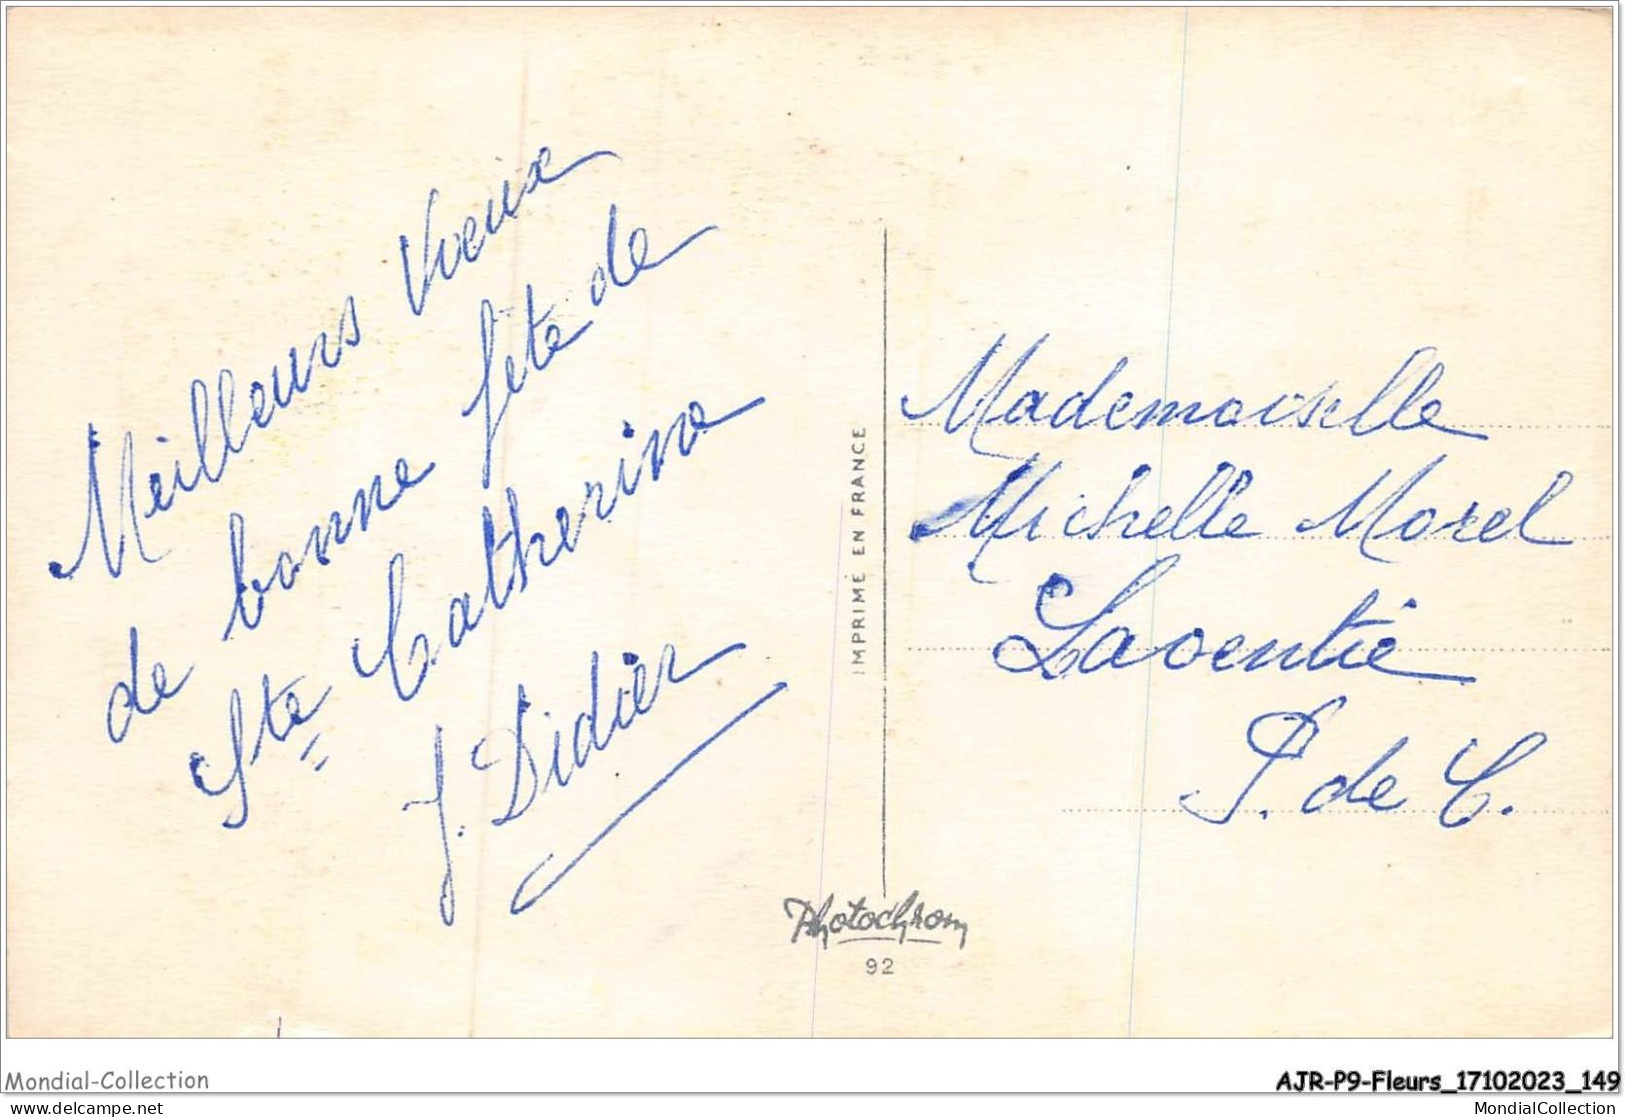 Meilleurs Voeux
de bonne fête de
Ste Catherine
J. Didier
IMPRIMÉ EN FRANCE
Photochrom
92
Mademoiselle
Michelle Morel
Laventie
P. de C.
Mondial-Collection
AJR-P9-Fleurs_17102023_149
delcampe.net
MondialCollection